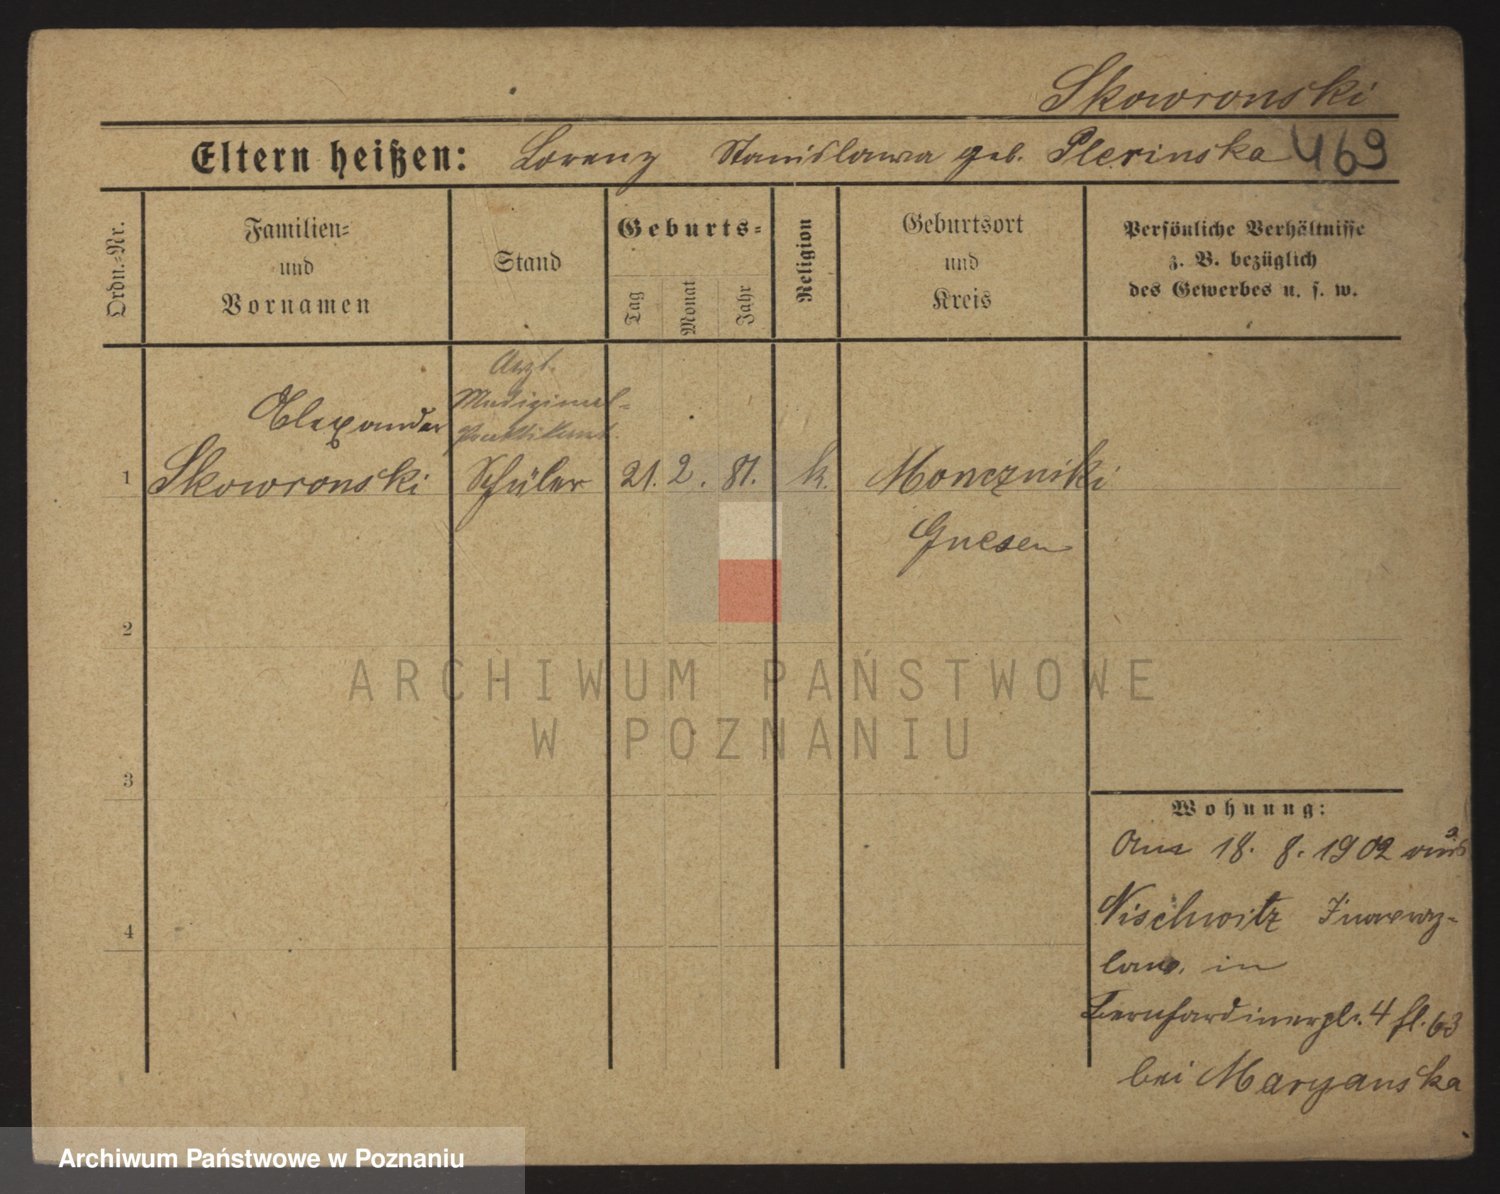 Skowronski
Eltern heißen: Lorenz Stanislawa geb. Plerinska 469
Ordn.-Nr.
Familien-
und
Vornamen
Stand
Geburts-
Tag
Monat
Jahr
Religion
Geburtsort
und
Kreis
Persönliche Verhältnisse
z. B. bezüglich
des Gewerbes u. s. w.
Arzt.
Medizinal-
Praktikant.
Alexander
1 Skowronski Schüler 21. 2. 81. k. Moncznïki
Gnesen
2
3
4
Wohnung:
Am 18. 8. 1902 aus
Nischwitz Inowraz-
law. in
Bernhardinerpl. 4 fl. 63
bei Maryanska
ARCHIWUM PAŃSTWOWE
W POZNANIU
Archiwum Państwowe w Poznaniu